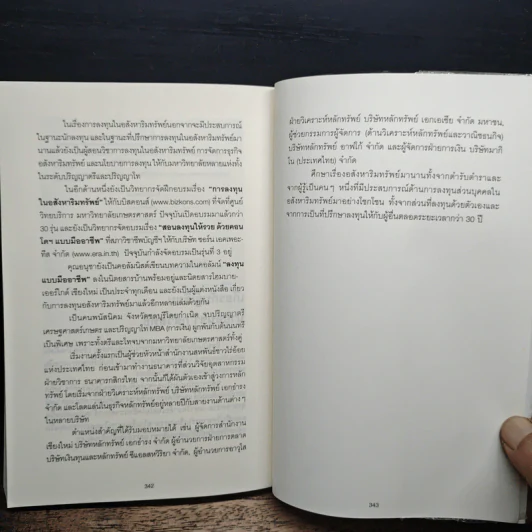 ในเรื่องการลงทุนในอสังหาริมทรัพย์นอกจากจะมีประสบการณ์
ในฐานะนักลงทุน และในฐานะที่ปรึกษาการลงทุนในอสังหาริมทรัพย์มา
นานแล้วยังเป็นผู้สอนวิชาการลงทุนในอสังหาริมทรัพย์ การจัดการธุรกิจ
อสังหาริมทรัพย์ และนโยบายการลงทุน ให้กับมหาวิทยาลัยหลายแห่งทั้ง
ในระดับปริญญาตรีและปริญญาโท
ในอีกด้านหนึ่งยังเป็นวิทยากรจัดฝึกอบรมเรื่อง "การลงทุน
ในอสังหาริมทรัพย์" ให้กับบิสคอนส์ (www.bizkons.com) ที่จัดที่ศูนย์
วิทยบริการ มหาวิทยาลัยเกษตรศาสตร์ ปัจจุบันเปิดอบรมมาแล้วกว่า
30 รุ่น และยังเป็นวิทยากรจัดอบรมเรื่อง "สอนลงทุนให้รวย ด้วยคอน
โดฯ แบบมืออาชีพ" ที่สภาวิชาชีพบัญชีฯ ให้กับบริษัท
จำกัด (www.era.in.th) ปัจจุบันกำลังจัดอบรมเป็นรุ่นที่ 3 อยู่
คุณอนุชายังเป็นคอลัมนิสต์เขียนบทความในคอลัมน์ "ลงทุน
แบบมืออาชีพ" ลงในนิตยสารบ้านพร้อมอยู่และนิตยสารโฮมบาย-
เออร์ไกด์ เชียงใหม่ เป็นประจำทุกเดือน และยังเป็นผู้แต่งหนังสือ เกี่ยว
กับการลงทุนอสังหาริมทรัพย์มาแล้วอีกหลายเล่มด้วยกัน
เป็นคนพนัสนิคม จังหวัดชลบุรีโดยกำเนิด จบปริญญาตรี
เศรษฐศาสตร์เกษตร และปริญญาโท MBA (การเงิน) ผูกพันกับต้นนนทรี
เป็นพิเศษ เพราะทั้งตรีและโทจบจากมหาวิทยาลัยเกษตรศาสตร์ทั้งคู่
เริ่มงานครั้งแรกเป็นผู้ช่วยหัวหน้าสำนักงานสหพันธ์ชาวไร่อ้อย
แห่งประเทศไทย ก่อนเข้ามาทำงานธนาคารที่ส่วนวิจัยอุตสาหกรรม
ฝ่ายวิชาการ ธนาคารกสิกรไทย จากนั้นก็ได้ผันตัวเองเข้าสู่วงการหลัก
ทรัพย์ โดยเริ่มจากฝ่ายวิเคราะห์หลักทรัพย์ บริษัทหลักทรัพย์ เอกธำรง
จำกัด และโลดแล่นในธุรกิจหลักทรัพย์อยู่หลายปีกับสายงานด้านต่าง ๆ
ในหลายบริษัท
ตำแหน่งสำคัญที่ได้รับมอบหมายได้ เช่น ผู้จัดการสำนักงาน
เชียงใหม่ บริษัทหลักทรัพย์ เอกธำรง จำกัด ผู้อำนวยการฝ่ายการตลาด
บริษัทเงินทุนและหลักทรัพย์ จำกัด, ผู้อำนวยการอาวุโส
342
ฝ่ายวิเคราะห์หลักทรัพย์ บริษัทหลักทรัพย์ เอกเอเซีย จำกัด มหาชน,
ผู้ช่วยกรรมการผู้จัดการ (ด้านวิเคราะห์หลักทรัพย์และวาณิชธนกิจ)
บริษัทหลักทรัพย์ จำกัด และผู้จัดการฝ่ายการเงิน บริษัทมากิ
โน (ประเทศไทย) จำกัด
ศึกษาเรื่องอสังหาริมทรัพย์มานานทั้งจากตำรับตำราและ
จากผู้รู้เป็นคนๆ หนึ่งที่มีประสบการณ์ด้านการลงทุนส่วนบุคคลใน
อสังหาริมทรัพย์มาอย่างโชกโชน ทั้งจากส่วนที่ลงทุนด้วยตัวเองและ
จากการเป็นที่ปรึกษาลงทุนให้กับผู้อื่นตลอดระยะเวลากว่า 30 ปี
343